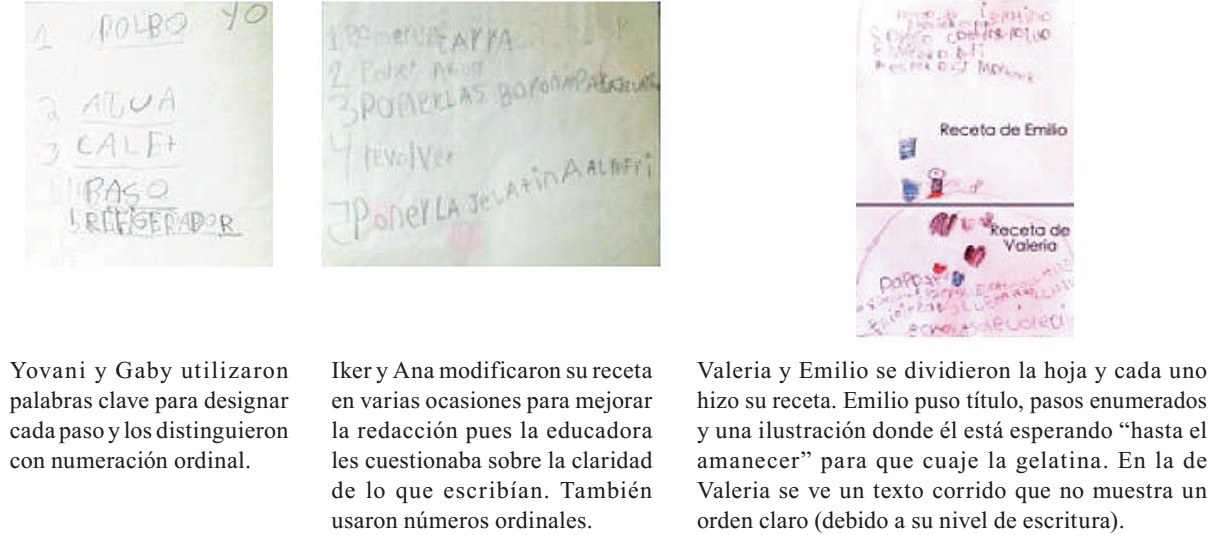 YO
1 POLBO
2 AGUA
3 CALE+
BASO
REFIGERADOR
2 Poner AGUA
3 PONERLAS
4 revolver
Poner LA JeLAtinA
Receta de Emilio
Receta de
Valeria
Yovani y Gaby utilizaron
palabras clave para designar
cada paso y los distinguieron
con numeración ordinal.
Iker y Ana modificaron su receta
en varias ocasiones para mejorar
la redacción pues la educadora
les cuestionaba sobre la claridad
de lo que escribían. También
usaron números ordinales.
Valeria y Emilio se dividieron la hoja y cada uno
hizo su receta. Emilio puso título, pasos enumerados
y una ilustración donde él está esperando “hasta el
amanecer” para que cuaje la gelatina. En la de
Valeria se ve un texto corrido que no muestra un
orden claro (debido a su nivel de escritura).